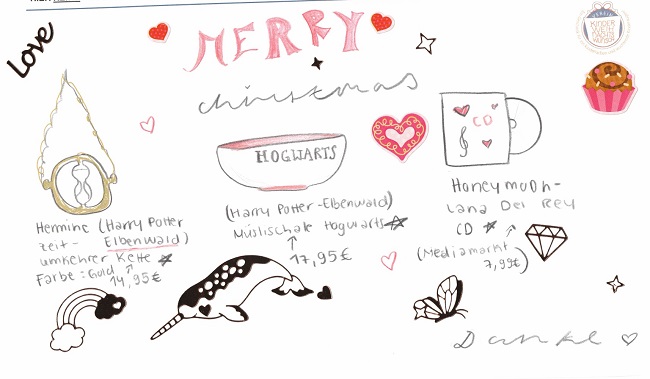 Love
MERRY
christmas
HOGWARTS
CD
Hermine (Harry Potter
zeit- Elbenwald)
umkehrer Kette
Farbe: Gold 14,95€
(Harry Potter-Elbenwald)
Müslischale Hogwarts
17,95€
Honeymoon-
Lana Del Rey
CD
(Mediamarkt
7,99€)
Danke